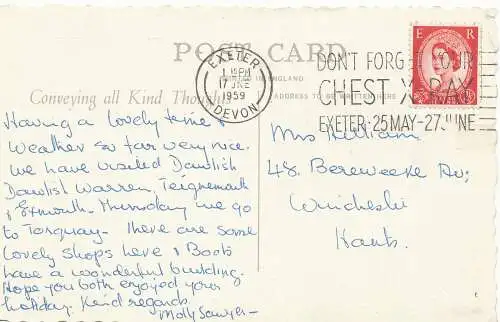 POST CARD
EXETER
1 15PM
17 JNE
1959
DEVON
DON'T FORGET YOUR
CHEST X-RAY
EXETER-25MAY-27JUNE
E R
IN ENGLAND
Conveying all Kind Thoughts
ADDRESS TO BE WRITTEN HERE
Having a lovely time &
Weather so far very nice.
We have visited Dawlish
Dawlish Warren, Teignmouth
& Exmouth. Thursday we go
to Torquay - There are some
lovely shops here & Boots
have a wonderful building.
Hope you both enjoyed your
holiday. Kind regards
Molly Sawyer -
Mrs
48. Bereweeke Av;
Winchester
Hants.